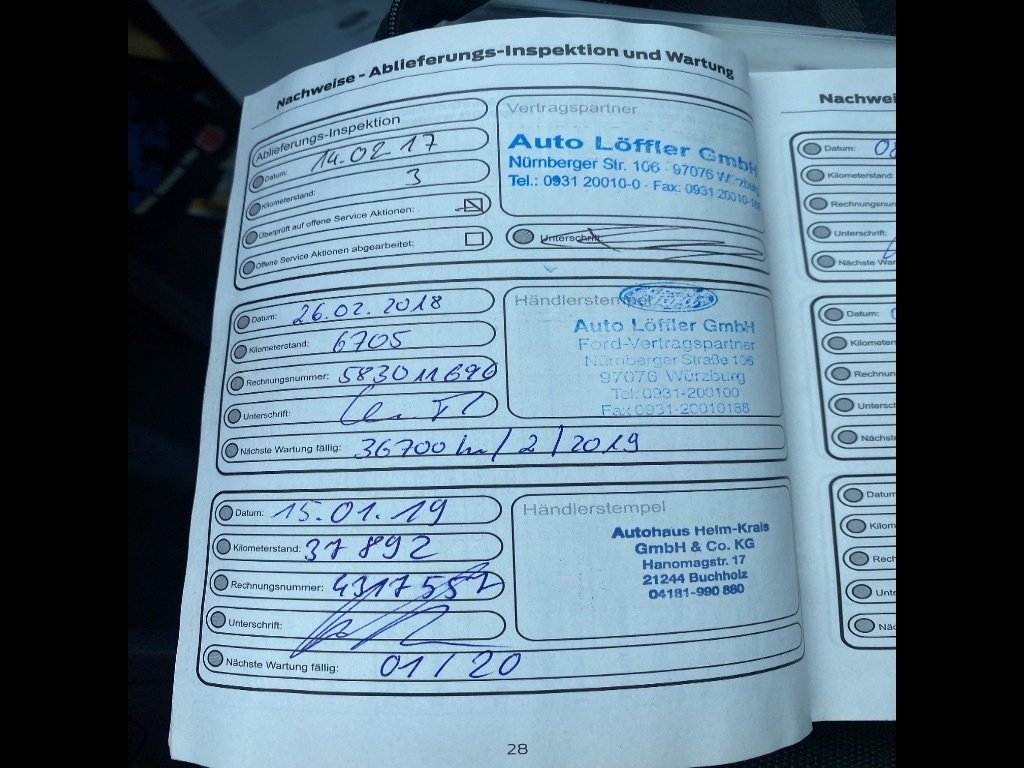 Nachweise - Ablieferungs-Inspektion und Wartung
Ablieferungs-Inspektion
Datum: 14.02 17
Kilometerstand: 3
Überprüft auf offene Service Aktionen:
Offene Service Aktionen abgearbeitet:
Vertragspartner
Auto Löffler GmbH
Nürnberger Str. 106 · 97076 Würzburg
Tel.: 0931 20010-0 · Fax: 0931 20010-188
Unterschrift:
Datum: 26.02.2018
Kilometerstand: 6705
Rechnungsnummer: 583011690
Unterschrift:
Nächste Wartung fällig: 36700 km / 2 / 2019
Händlerstempel
Ford
Auto Löffler GmbH
Ford-Vertragspartner
Nürnberger Straße 106
97076 Würzburg
Tel. 0931-200100
Fax 0931-20010188
Datum: 15.01.19
Kilometerstand: 37892
Rechnungsnummer: 4317557
Unterschrift:
Nächste Wartung fällig: 01 / 20
Händlerstempel
Autohaus Helm-Krais
GmbH & Co. KG
Hanomagstr. 17
21244 Buchholz
04181-990 880
28
Datum:
Kilometerstand:
Unterschrift:
Datum: